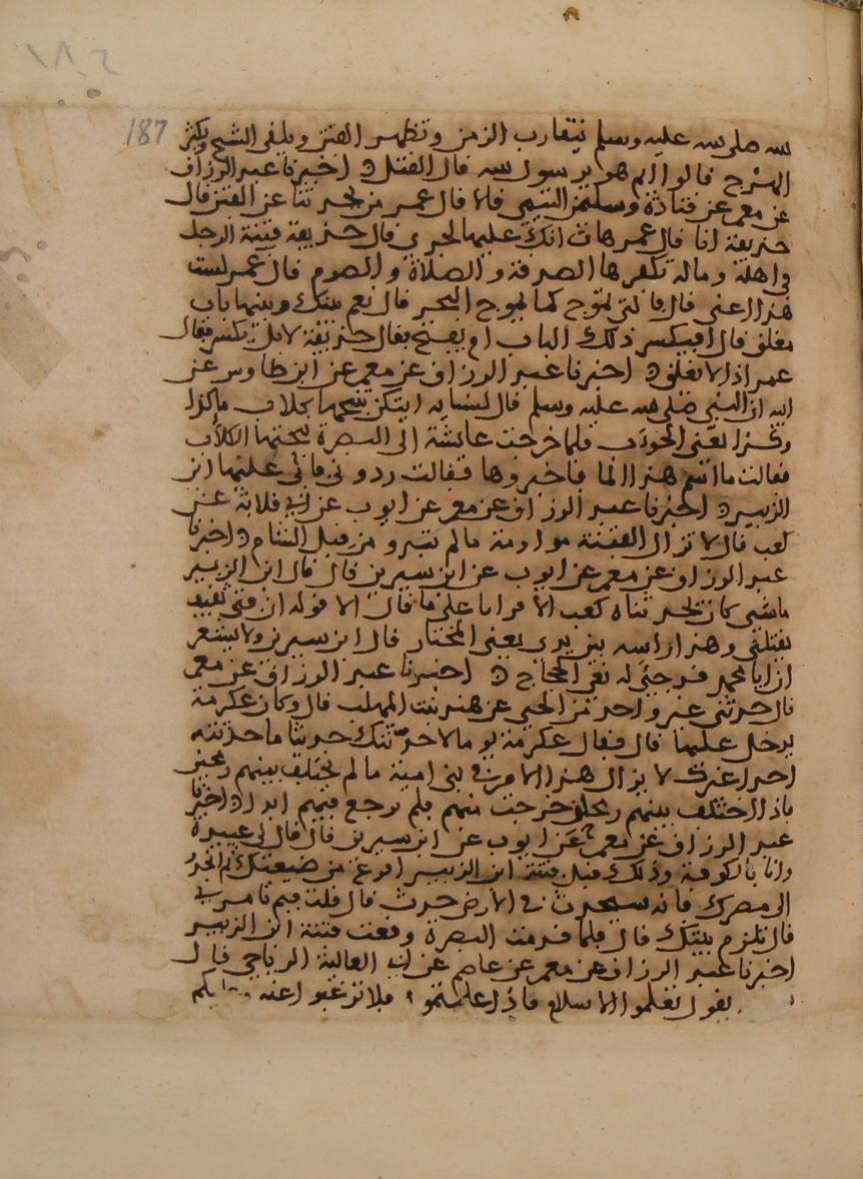 187
الله صلى الله عليه وسلم يتقارب الزمن وتظهر الفتن ويلقى الشح ويكثر
الهرج قالوا ايم هو يرسول الله قال القتل اخبرنا عبد الرزاق
عن معمر عن قتادة وسليمن التيمي قالا قال عمر من يحدثنا عن الفتن قال
حذيفة انا قال عمر هات انك عليها لجري قال حذيفة فتنة الرجل
في اهله وماله تكفرها الصدقة والصلاة والصوم قال عمر لست
هذا اعني قال فالتي تموج كما يموج البحر قال نعم بينك وبينها باب
مغلق قال افيكسر ذلك الباب ام يفتح فقال حذيفة لا بل يكسر فقال
عمر اذا لا يغلق اخبرنا عبد الرزاق عن معمر عن ابن طاوس عن
ابيه ان النبي صلى الله عليه وسلم قال لنسايه ايتكن تنبحها كلاب ماكذا
وكذا يعني الحوءب فلما خرجت عائشة الى البصرة نبحتها الكلاب
فقالت ما اسم هذا الما فاخبروها فقالت ردوني فابى عليها ابن
الزبير اخبرنا عبد الرزاق عن معمر عن ايوب عن ابي قلابة عن
كعب قال لا تزال الفتنة موادمة مالم تبدو من قبل الشام اخبرنا
عبد الرزاق عن معمر عن ايوب عن ابن سيرين قال قال ابن الزبير
ماشي كان يحدثناه كعب الا قد اتا على ما قال الا قوله ان فتى ثقيف
يقتلني وهذا راسه بين يدي يعني المختار قال ابن سيرين ولا يشعر
ان ابا محمد قد خبي له يعني الحجاج اخبرنا عبد الرزاق عن معمر
قال حدثني غير واحد من الحي عن هند بنت المهلب قال وكان عكرمة
يدخل عليها قال فقال عكرمة يوما لاحدثنك حديثا ما حدثته
احدا غيرك لا يزال هذا الامر في بني امية مالم يختلف بينهم رمحين
فاذا اختلف بينهم رمحان خرجت منهم فلم ترجع فيهم ابدا اخبرنا
عبد الرزاق عن معمر عن ايوب عن ابن سيرين قال قال لي عبيدة
وانا بالكوفة وذلك قبل فتنة ابن الزبير افرغ من ضيعتك ثم انحدر
الى مصرك فانه سيحدث في الارض حدث قال قلت فبم تامرني
قال تلزم بيتك قال فلما قدمت البصرة وقعت فتنة ابن الزبير
اخبرنا عبد الرزاق عن معمر عن عاصم عن ابي العالية الرياحي قال
يقول تعلموا الاسلام فاذا علمتموه فلا ترغبوا عنه